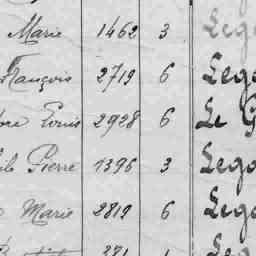 Marie 1462 3 Lego
François 2719 6 Lego
Louis 2928 6 Le G
Pierre 1396 3 Lego
Marie 2819 6 Lego
Leg